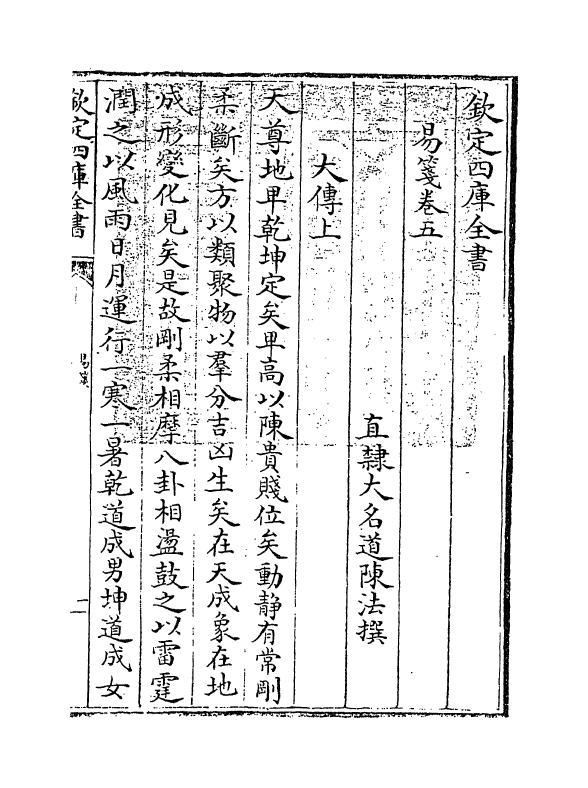 欽定四庫全書
易箋卷五
直隸大名道陳法撰
大傳上
天尊地卑乾坤定矣卑高以陳貴賤位矣動静有常剛
柔斷矣方以類聚物以羣分吉凶生矣在天成象在地
成形變化見矣是故剛柔相摩八卦相盪鼓之以雷霆
潤之以風雨日月運行一寒一暑乾道成男坤道成女
欽定四庫全書
易箋